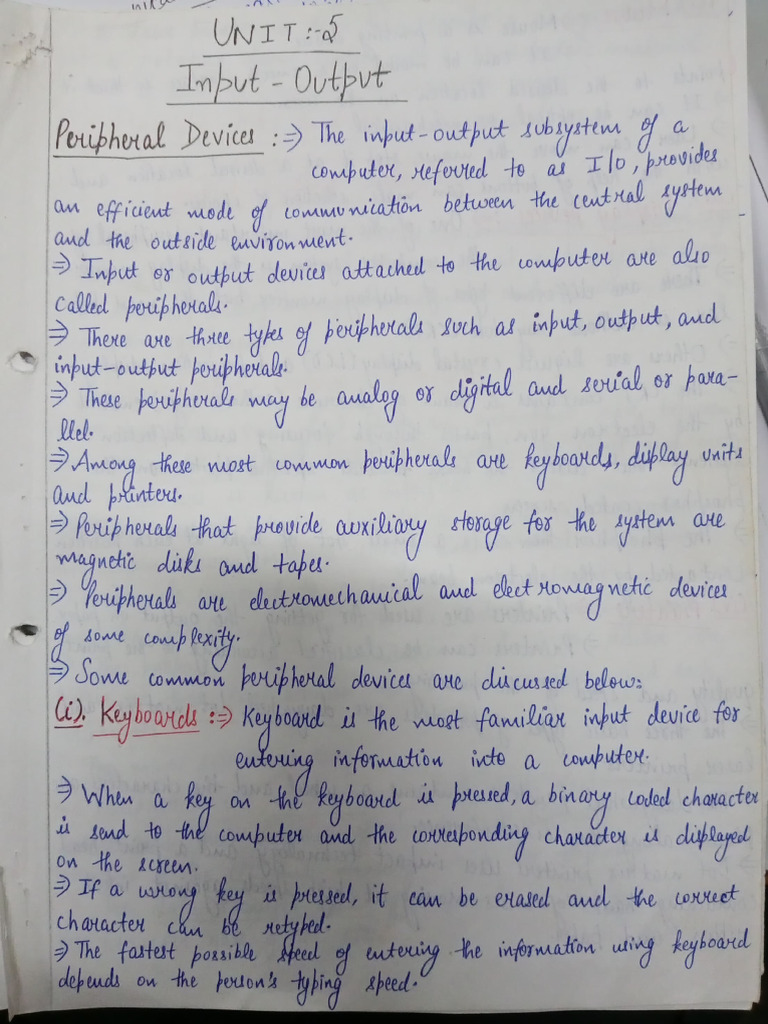 UNIT:-5
Input-Output
Peripheral Devices :⇒ The input-output subsystem of a
computer, referred to as I/O, provides
an efficient mode of communication between the central system
and the outside environment.
⇒ Input or output devices attached to the computer are also
called peripherals.
⇒ There are three types of peripherals such as input, output, and
input-output peripherals.
⇒ These peripherals may be analog or digital and serial or para-
llel.
⇒ Among these most common peripherals are keyboards, display units
and printers.
⇒ Peripherals that provide auxiliary storage for the system are
magnetic disks and tapes.
⇒ Peripherals are electromechanical and electromagnetic devices
of some complexity.
⇒ Some common peripheral devices are discussed below:
(i). Keyboards :⇒ Keyboard is the most familiar input device for
entering information into a computer.
⇒ When a key on the keyboard is pressed, a binary coded character
is send to the computer and the corresponding character is displayed
on the screen.
⇒ If a wrong key is pressed, it can be erased and the correct
character can be retyped.
⇒ The fastest possible speed of entering the information using keyboard
depends on the person's typing speed.